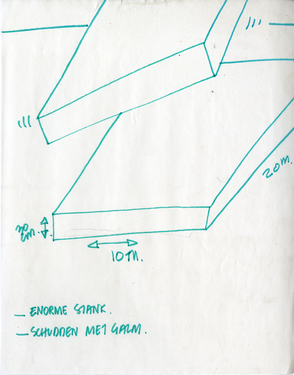 20m.
10m.
— ENORME STANK.
— SCHUDDEN MET GALM.